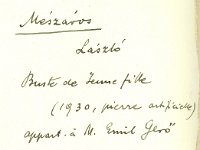 Mészáros
László
Buste de Jeune fille
(1930, pierre artificielle)
appart. à M. Emil Gerő